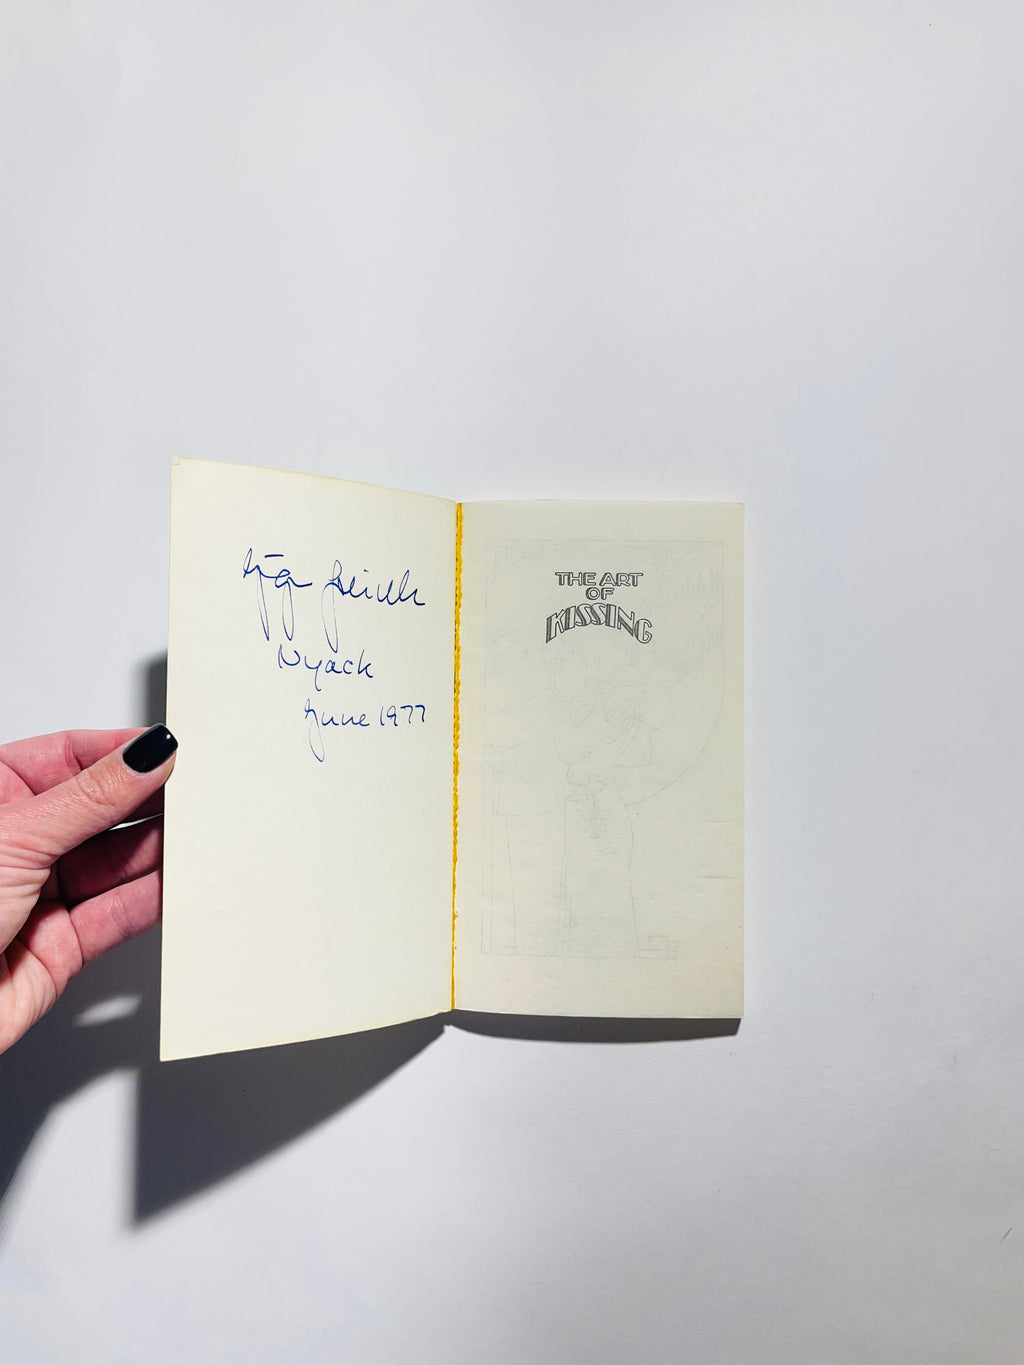 Nyack
June 1977
THE ART
OF
KISSING